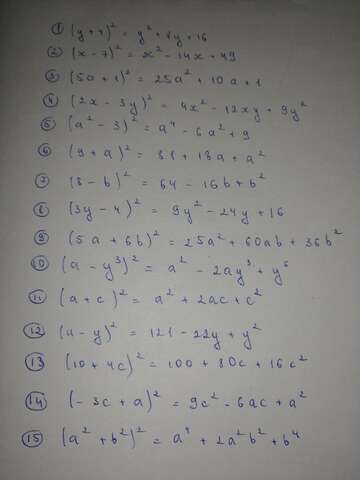 1 (y + 4)² = y² + 8y + 16
2 (x - 7)² = x² - 14x + 49
3 (5a + 1)² = 25a² + 10a + 1
4 (2x - 3y)² = 4x² - 12xy + 9y²
5 (a² - 3)² = a⁴ - 6a² + 9
6 (9 + a)² = 81 + 18a + a²
7 (8 - b)² = 64 - 16b + b²
8 (3y - 4)² = 9y² - 24y + 16
9 (5a + 6b)² = 25a² + 60ab + 36b²
10 (a - y³)² = a² - 2ay³ + y⁶
11 (a + c)² = a² + 2ac + c²
12 (a - y)² = 121 - 22y + y²
13 (10 + 4c)² = 100 + 80c + 16c²
14 (-3c + a)² = 9c² - 6ac + a²
15 (a² + b²)² = a⁴ + 2a²b² + b⁴